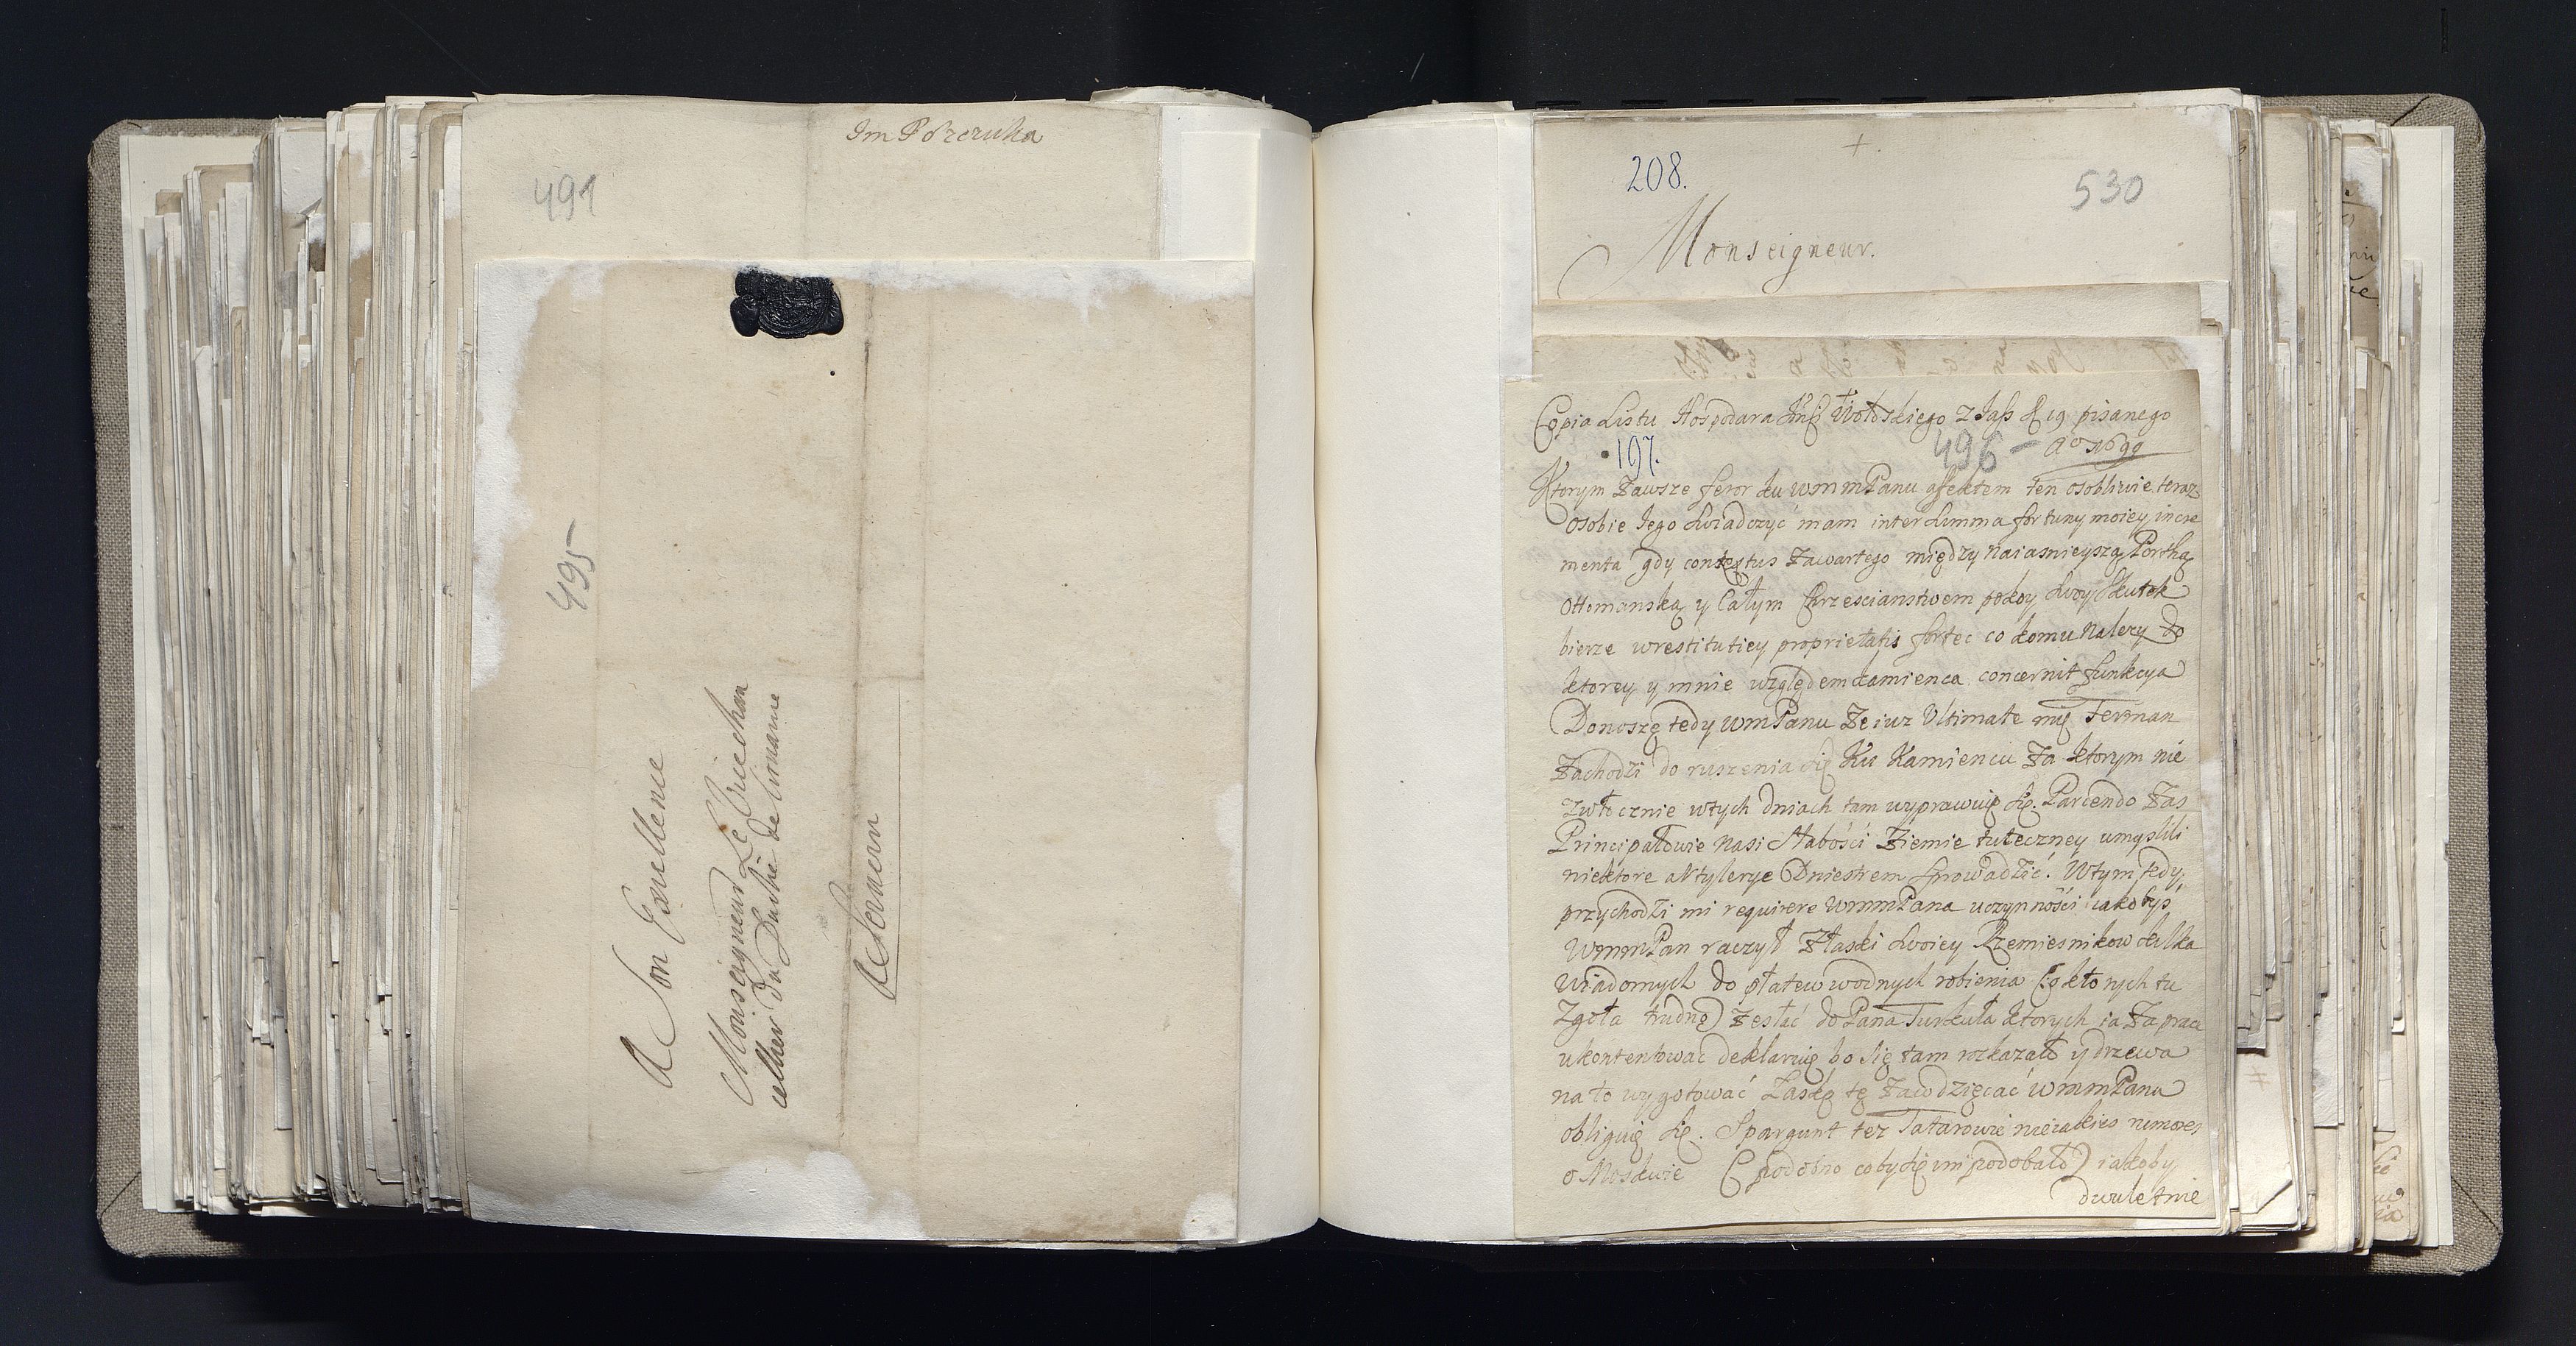 Im P Brzruka
491
495
A Son Exellence
Monseigneur Le Vicechan
celher du Duché de Lituanie
208.
+.
530
Monseigneur.
Copia Listu Hospodara Wołoskiego z Jass 19 pisanego
197.
496
Ao 1699
Ktorym zawsze feror ku wmmPanu affektem ten osobliwie teraz
osobie Jego swiadczyć mam inter summa fortuny moiey incre
menta gdy contextus zawartego między naiasnieyszą Porthą
Ottomanską y całym Chrzescianstwem pokoy swoy skutek
bierze w restitutiey proprietatis fortec co komu nalezy do
ktorey y mnie względem kamienca concernit funkcya
Donoszę tedy wmPanu Ze iuz Ultimate mię Ferman
Zachodzi do ruszenia się Ku Kamiencu Za ktorym nie
zwłocznie w tych dniach tam wyprawuię się. Parcendo Zas
Principałowie nasi słabości Ziemie tuteczney umyslili
niektore artylerye Dniestrem sprowadzić. W tym tedy
przychodzi mi requirere wmmPana uczynności iakobys
WmmPan raczył Złaski swoiey Rzemiesnikow kilka
wiadomych do płatew wodnych robienia (o ktorych tu
Zgoła trudno) Zesłać do Pana Turkuła ktorych ia Za prace
ukontentować deklaruię bo się tam rozkazało y drzewa
na to wygotować Łaskę tę Zawdzięcać wmmPanu
obliguię się. Spargunt tez Tatarowie nieiakies rumores
o Moskwie (podobno coby się im podobało) iakoby
dwuletnie